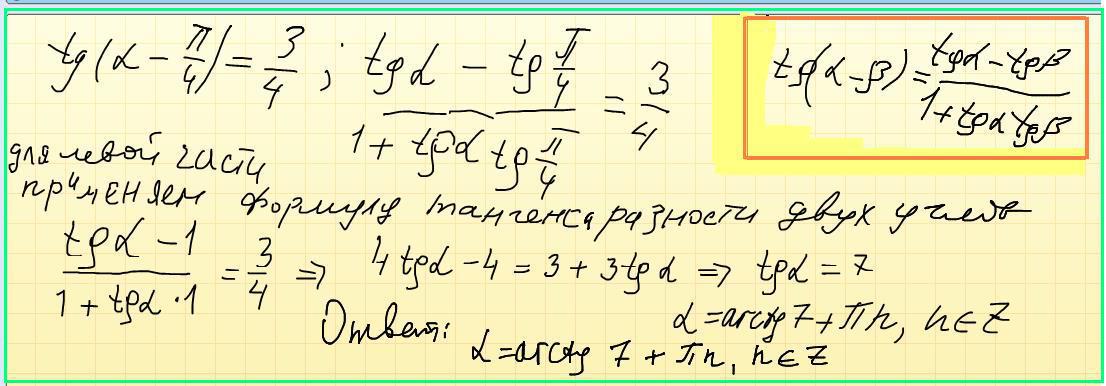 tg(α − π/4) = 3/4 ; (tgα − tg π/4)/(1 + tgα tg π/4) = 3/4
tg(α−β) = (tgα − tgβ)/(1 + tgα tgβ)
для левой части
применяем формулу тангенса разности двух углов
(tgα − 1)/(1 + tgα · 1) = 3/4 ⇒ 4tgα − 4 = 3 + 3tgα ⇒ tgα = 7
α = arctg 7 + πn, n ∈ Z
Ответ:
α = arctg 7 + πn, n ∈ Z